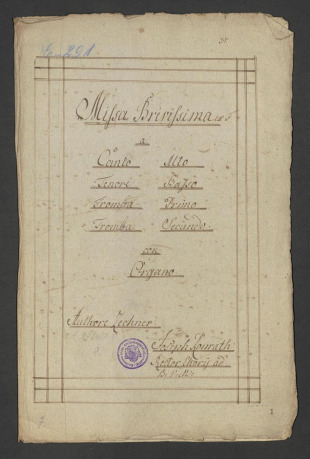 38
E 291
Missa Brevissima
a
Canto Alto
Tenore Basso
Tromba Primo
Tromba Secundo
con
Organo
Authore Zechner
Joseph
Rector Chori ad
1